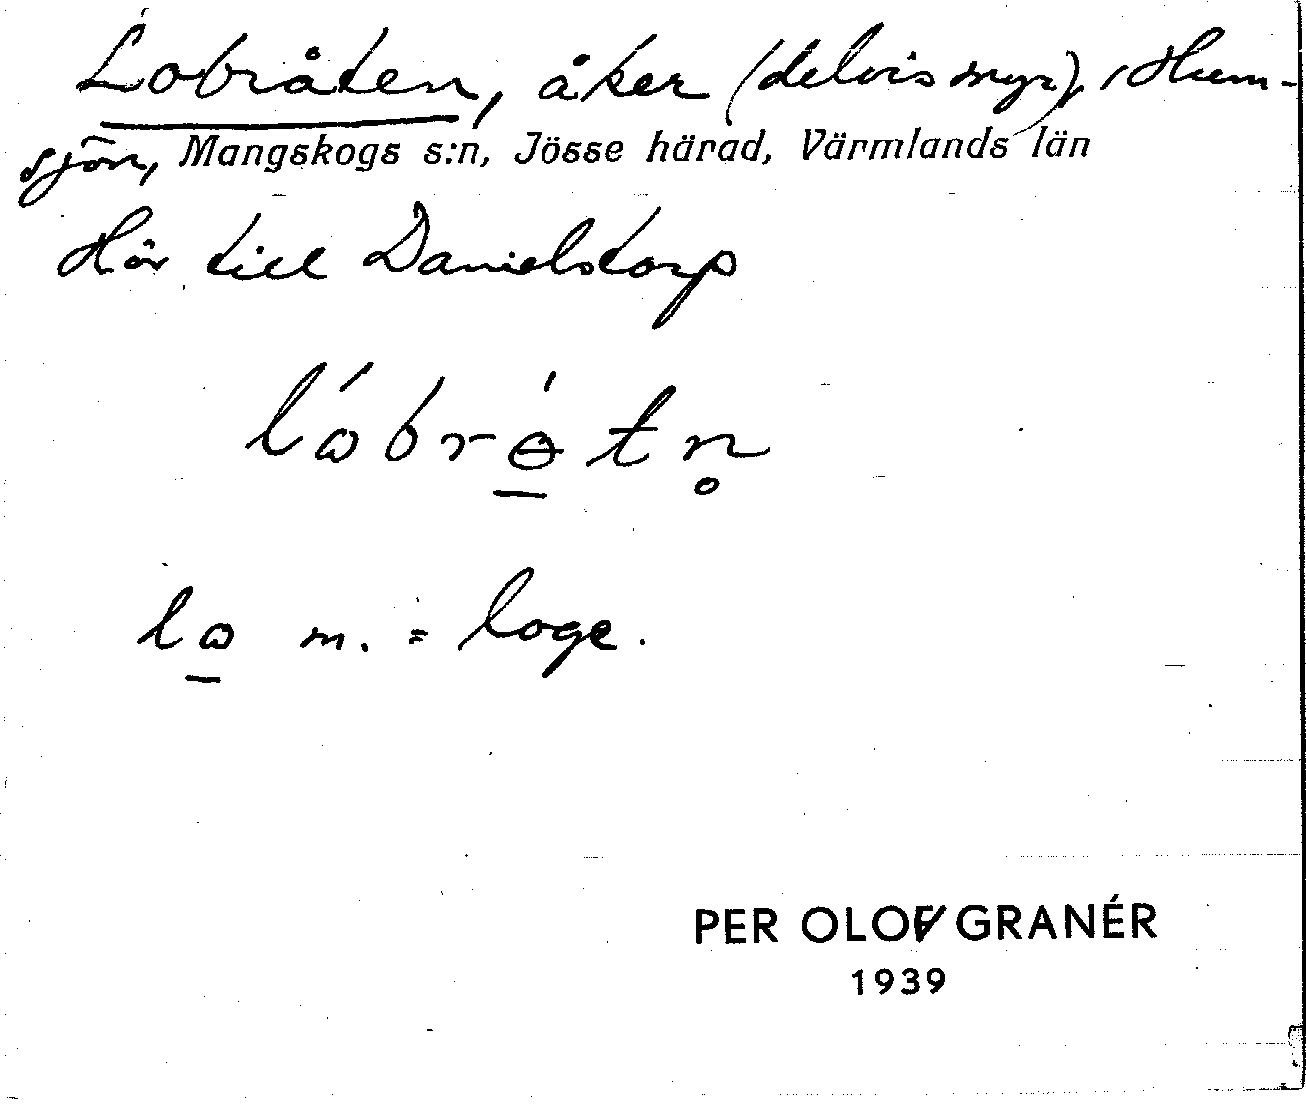 Lobråten, åker (delvis myr), Hum-
sjön, Mangskogs s:n, Jösse härad, Värmlands län
Hör till Danielstorp
lɷ́brɵ̱́tn̥
lɷ̱ m. = loge.
PER OLOF GRANÉR
1939